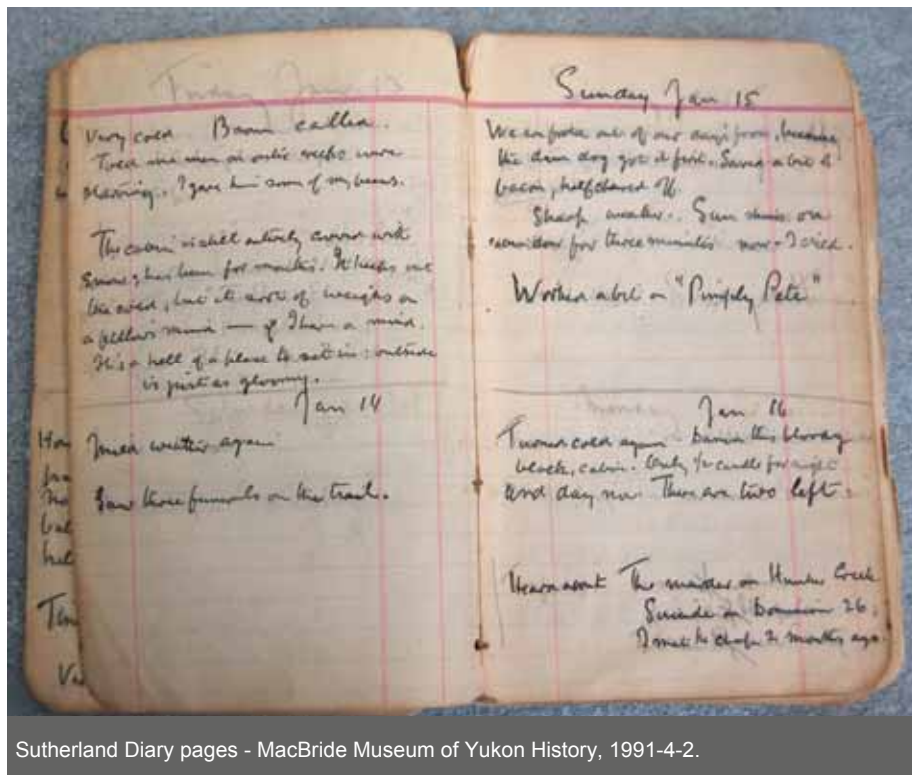 Friday Jan 13
Very cold Baum called.
Told me men on other creeks were
starving. I gave him some of my beans.
The cabin is still entirely covered with
snow, has been for months. It keeps out
the cold, but it sort of weighs on
a fellows mind — if I have a mind.
It's a hell of a place to sit in: outside
is just as gloomy.
Jan 14
weather again
Saw three funerals on the trail.
Sunday Jan 15
We are out of our days, because
the dum dog got it first. Saving a bit of
bacon, half chewed off.
Sharp weather. Sun shines on
window for three minutes now - I cried.
Worked a bit on "Pimply Pete"
Monday Jan 16
Turned cold again - Damn this bloody
black, cabin. Only ½ candle for night
and day now There are two left.
Heard about The murder on Hunker Creek
Suicide on Dominion 26.
I met the chap 2 months ago.
Hou
Ten
Va
Sutherland Diary pages - MacBride Museum of Yukon History, 1991-4-2.